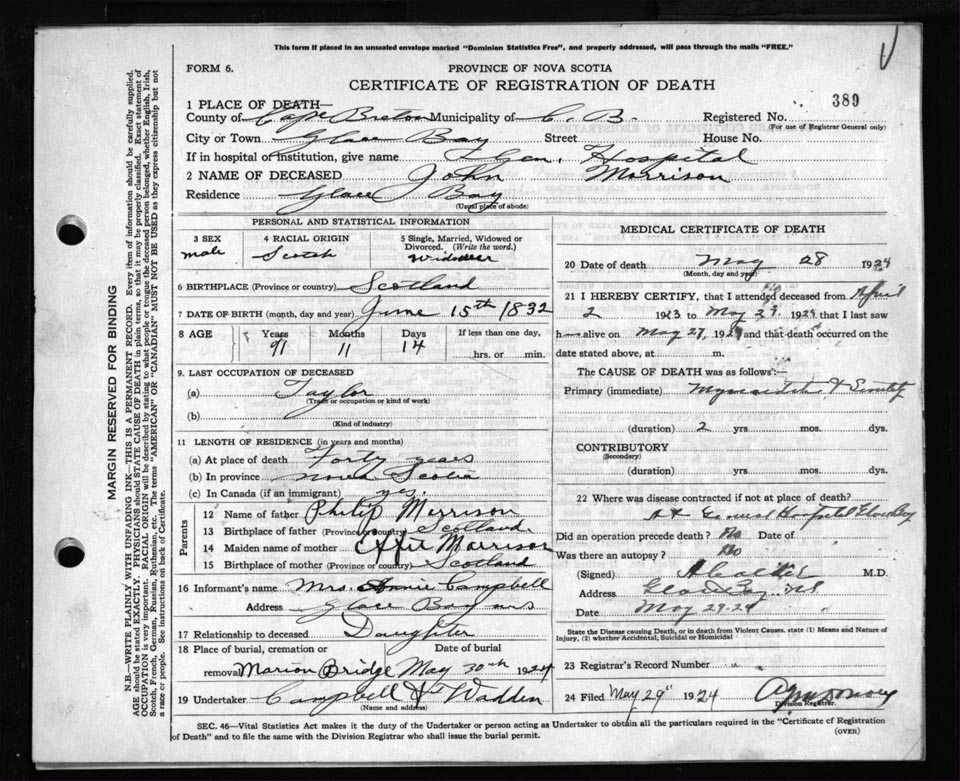 This form if placed in an unsealed envelope marked "Dominion Statistics Free", and properly addressed, will pass through the mails "FREE."
FORM 6.
PROVINCE OF NOVA SCOTIA
CERTIFICATE OF REGISTRATION OF DEATH
389
1 PLACE OF DEATH—
County of Cape Breton Municipality of C. B. Registered No.
(For use of Registrar General only)
City or Town Glace Bay Street House No.
If in hospital or institution, give name Gen. Hospital
2 NAME OF DECEASED John Morrison
Residence Glace Bay
(Usual place of abode)
PERSONAL AND STATISTICAL INFORMATION
3 SEX male
4 RACIAL ORIGIN Scotch
5 Single, Married, Widowed or Divorced. (Write the word.) Widower
6 BIRTHPLACE (Province or country) Scotland
7 DATE OF BIRTH (month, day and year) June 15th 1832
8 AGE Years Months Days If less than one day,
91 11 14 hrs. or min.
9. LAST OCCUPATION OF DECEASED
(a) Taylor
(Trade or occupation or kind of work)
(b)
(Kind of industry)
11 LENGTH OF RESIDENCE (in years and months)
(a) At place of death Forty years
(b) In province Nova Scotia
(c) In Canada (if an immigrant) yes.
Parents
12 Name of father Philip Morrison
13 Birthplace of father (Province or country) Scotland
14 Maiden name of mother Effie Morrison
15 Birthplace of mother (Province or country) Scotland
16 Informant's name Mrs. Annie Campbell
Address Glace Bay NS
17 Relationship to deceased Daughter
18 Place of burial, cremation or Date of burial
removal Marion Bridge May 30th 1924
19 Undertaker Campbell & Wadden
(Name and address)
MEDICAL CERTIFICATE OF DEATH
20 Date of death May 28 1924
(Month, day and year)
21 I HEREBY CERTIFY, that I attended deceased from April
2 1923 to May 1924 that I last saw
h alive on May 27, 192 and that death occurred on
date stated above, at m.
The CAUSE OF DEATH was as follows:—
Primary (immediate) &
(duration) 2 yrs mos. dys.
CONTRIBUTORY
(Secondary)
(duration) yrs. mos. dys.
22 Where was disease contracted if not at place of death?
Hospital Glace Bay
Did an operation precede death? No Date of
Was there an autopsy? No
(Signed) M.D.
Address Glace Bay, NS
Date May 29-24
State the Disease causing Death, or in death from Violent Causes, state (1) Means and Nature of
Injury, (2) whether Accidental, Suicidal or Homicidal
23 Registrar's Record Number
24 Filed May 29" 1924
Division Registrar.
SEC. 46—Vital Statistics Act makes it the duty of the Undertaker or person acting as Undertaker to obtain all the particulars required in the "Certificate of Registration
of Death" and to file the same with the Division Registrar who shall issue the burial permit.
(OVER)
MARGIN RESERVED FOR BINDING
N.B.—WRITE PLAINLY WITH UNFADING INK—THIS IS A PERMANENT RECORD. Every item of information should be carefully supplied.
AGE should be stated EXACTLY. PHYSICIANS should STATE CAUSE OF DEATH in plain terms, so that it may be properly classified. Exact statement of
OCCUPATION is very important. RACIAL ORIGIN will be described by stating to what people or tongue the deceased person belonged, whether English, Irish,
Scotch, French, German, Russian, Ruthenian, etc. The terms "AMERICAN" OR "CANADIAN" MUST NOT BE USED as they express citizenship but not
a race or people. See instructions on back of Certificate.